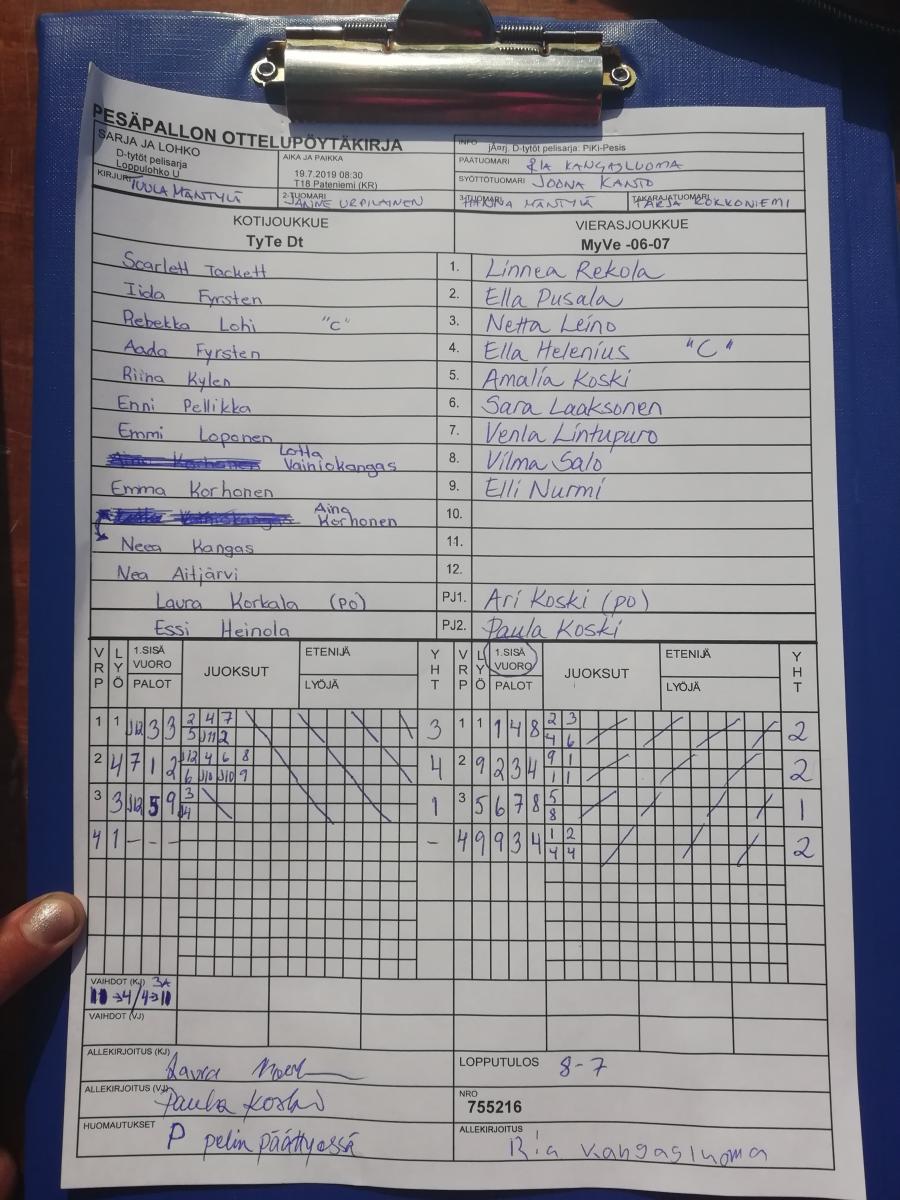 PESÄPALLON OTTELUPÖYTÄKIRJA
SARJA JA LOHKO
D-tytöt pelisarja
Loppulohko U
AIKA JA PAIKKA
19.7.2019 08:30
T18 Pateniemi (KR)
INFO
jAarj. D-tytöt pelisarja: PiKi-Pesis
PÄÄTUOMARI RIA KANGASLUOMA
SYÖTTÖTUOMARI JOONA KANTO
KIRJURI TUULA MÄNTYLÄ
2-TUOMARI JANNE URPILAINEN
3-TUOMARI HANNA MÄNTYLÄ
TAKARAJATUOMARI TARJA KOKKONIEMI
KOTIJOUKKUE
TyTe Dt
VIERASJOUKKUE
MyVe -06-07
Scarlett Tackett 1. Linnea Rekola
Iida Fyrsten 2. Ella Pusala
Rebekka Lohi "C" 3. Netta Leino
Aada Fyrsten 4. Ella Helenius "C"
Riina Kylen 5. Amalia Koski
Enni Pellikka 6. Sara Laaksonen
Emmi Loponen 7. Venla Lintupuro
Lotta Vainiokangas 8. Vilma Salo
Emma Korhonen 9. Elli Nurmi
Aina Korhonen 10.
Neea Kangas 11.
Nea Aitjärvi 12.
Laura Korkala (po) PJ1. Ari Koski (po)
Essi Heinola PJ2. Paula Koski
VRP LYÖ 1.SISÄ VUORO PALOT JUOKSUT ETENIJÄ LYÖJÄ YHT VRP LYÖ 1.SISÄ VUORO PALOT JUOKSUT ETENIJÄ LYÖJÄ YHT
1 1 J12 3 3 2 4 7 3 1 1 1 4 8 2 3 2
5 J11 2 4 6
2 4 7 1 2 J12 4 6 8 4 2 9 2 3 4 9 1 2
6 J10 J10 9 1 1
3 3 J12 5 9 3 1 3 5 6 7 8 5 1
J4 8
4 1 - - - - 4 9 9 3 4 1 2 2
4 4
VAIHDOT (KJ) 3A
11→4/4→11
VAIHDOT (VJ)
ALLEKIRJOITUS (KJ) Laura
LOPPUTULOS 8-7
ALLEKIRJOITUS (VJ) Paula Koski
NRO
755216
HUOMAUTUKSET P pelin päättyessä
ALLEKIRJOITUS Ria Kangasluoma